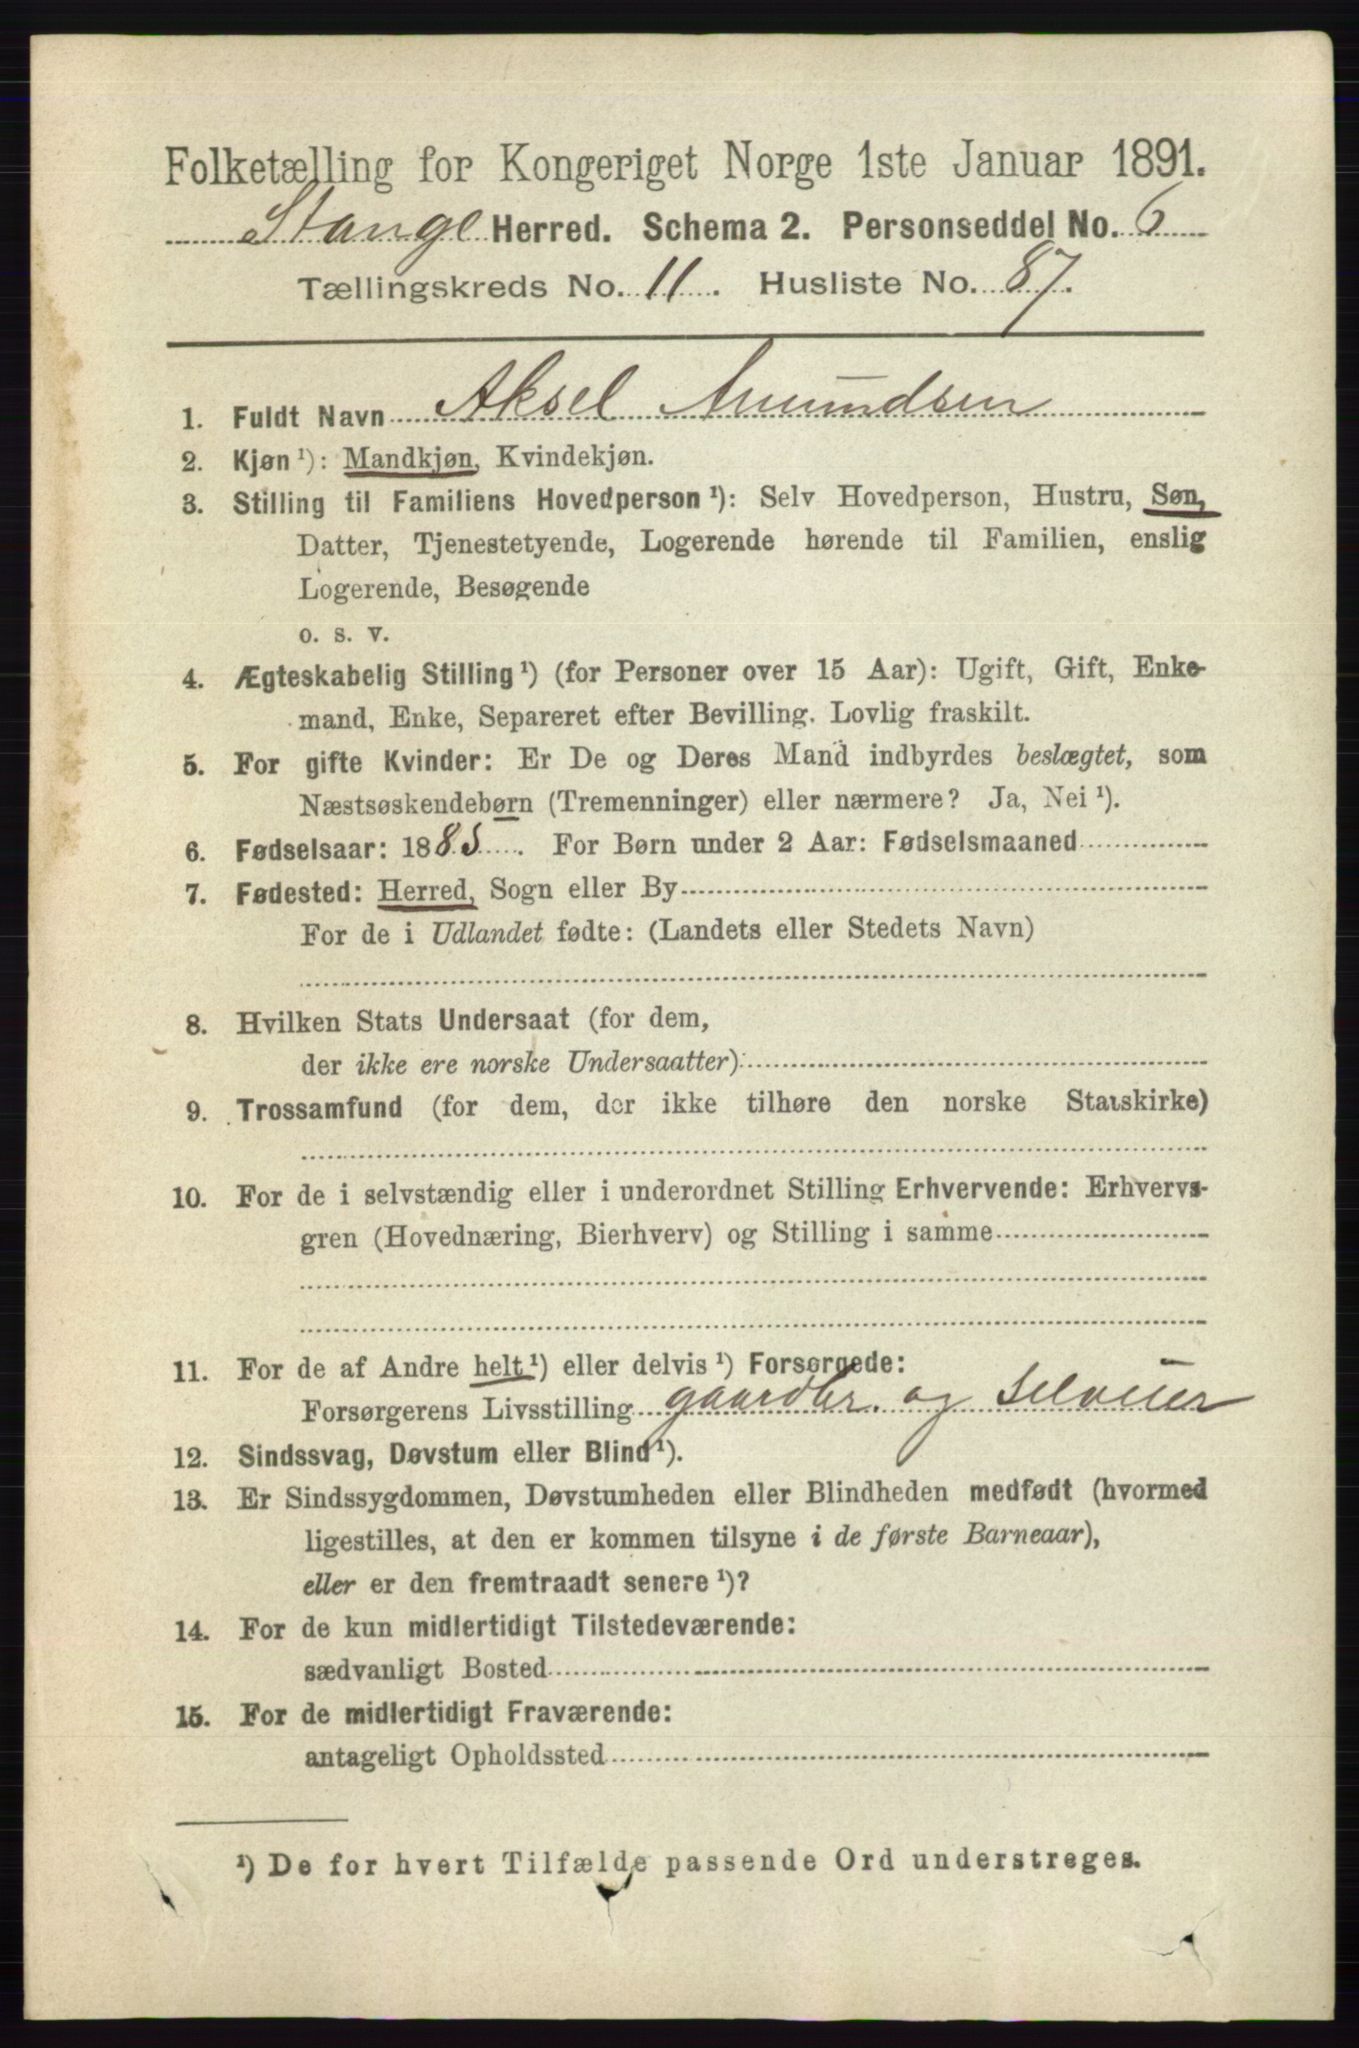 Folketælling for Kongeriget Norge 1ste Januar 1891.
Stange Herred. Schema 2. Personseddel No. 6
Tællingskreds No. 11. Husliste No. 87.
1. Fuldt Navn Aksel Amundsen
2. Kjøn ¹): Mandkjøn, Kvindekjøn.
3. Stilling til Familiens Hovedperson ¹): Selv Hovedperson, Hustru, Søn,
Datter, Tjenestetyende, Logerende hørende til Familien, enslig
Logerende, Besøgende
o. s. v.
4. Ægteskabelig Stilling ¹) (for Personer over 15 Aar): Ugift, Gift, Enke-
mand, Enke, Separeret efter Bevilling. Lovlig fraskilt.
5. For gifte Kvinder: Er De og Deres Mand indbyrdes beslægtet, som
Næstsøskendebørn (Tremenninger) eller nærmere? Ja, Nei ¹).
6. Fødselsaar: 1885. For Børn under 2 Aar: Fødselsmaaned
7. Fødested: Herred, Sogn eller By
For de i Udlandet fødte: (Landets eller Stedets Navn)
8. Hvilken Stats Undersaat (for dem,
der ikke ere norske Undersaatter):
9. Trossamfund (for dem, der ikke tilhøre den norske Statskirke)
10. For de i selvstændig eller i underordnet Stilling Erhvervende: Erhvervs-
gren (Hovednæring, Bierhverv) og Stilling i samme
11. For de af Andre helt ¹) eller delvis ¹) Forsørgede:
Forsørgerens Livsstilling gaardbr. og Selveier
12. Sindssvag, Døvstum eller Blind ¹).
13. Er Sindssygdommen, Døvstumheden eller Blindheden medfødt (hvormed
ligestilles, at den er kommen tilsyne i de første Barneaar),
eller er den fremtraadt senere ¹)?
14. For de kun midlertidigt Tilstedeværende:
sædvanligt Bosted
15. For de midlertidigt Fraværende:
antageligt Opholdssted
¹) De for hvert Tilfælde passende Ord understreges.